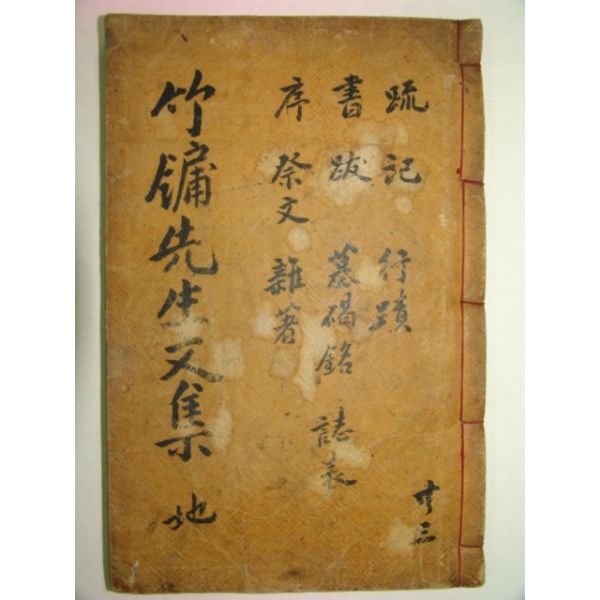 疏 記 行蹟
書 跋 墓碣銘 誌
序 祭文 雜著
竹牖先生文集 地
共三